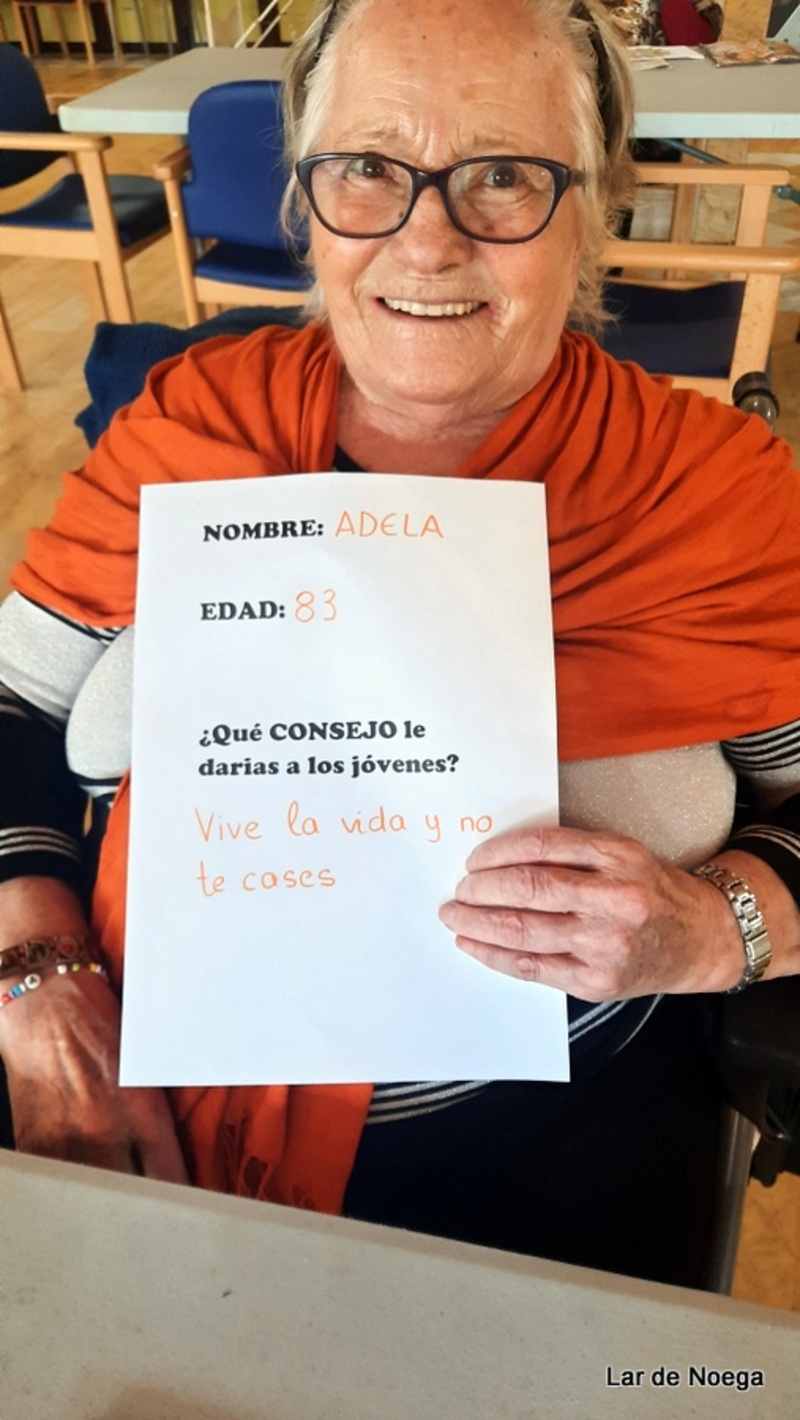 NOMBRE: ADELA
EDAD: 83
¿Qué CONSEJO le
darias a los jóvenes?
Vive la vida y no
te cases
Lar de Noega